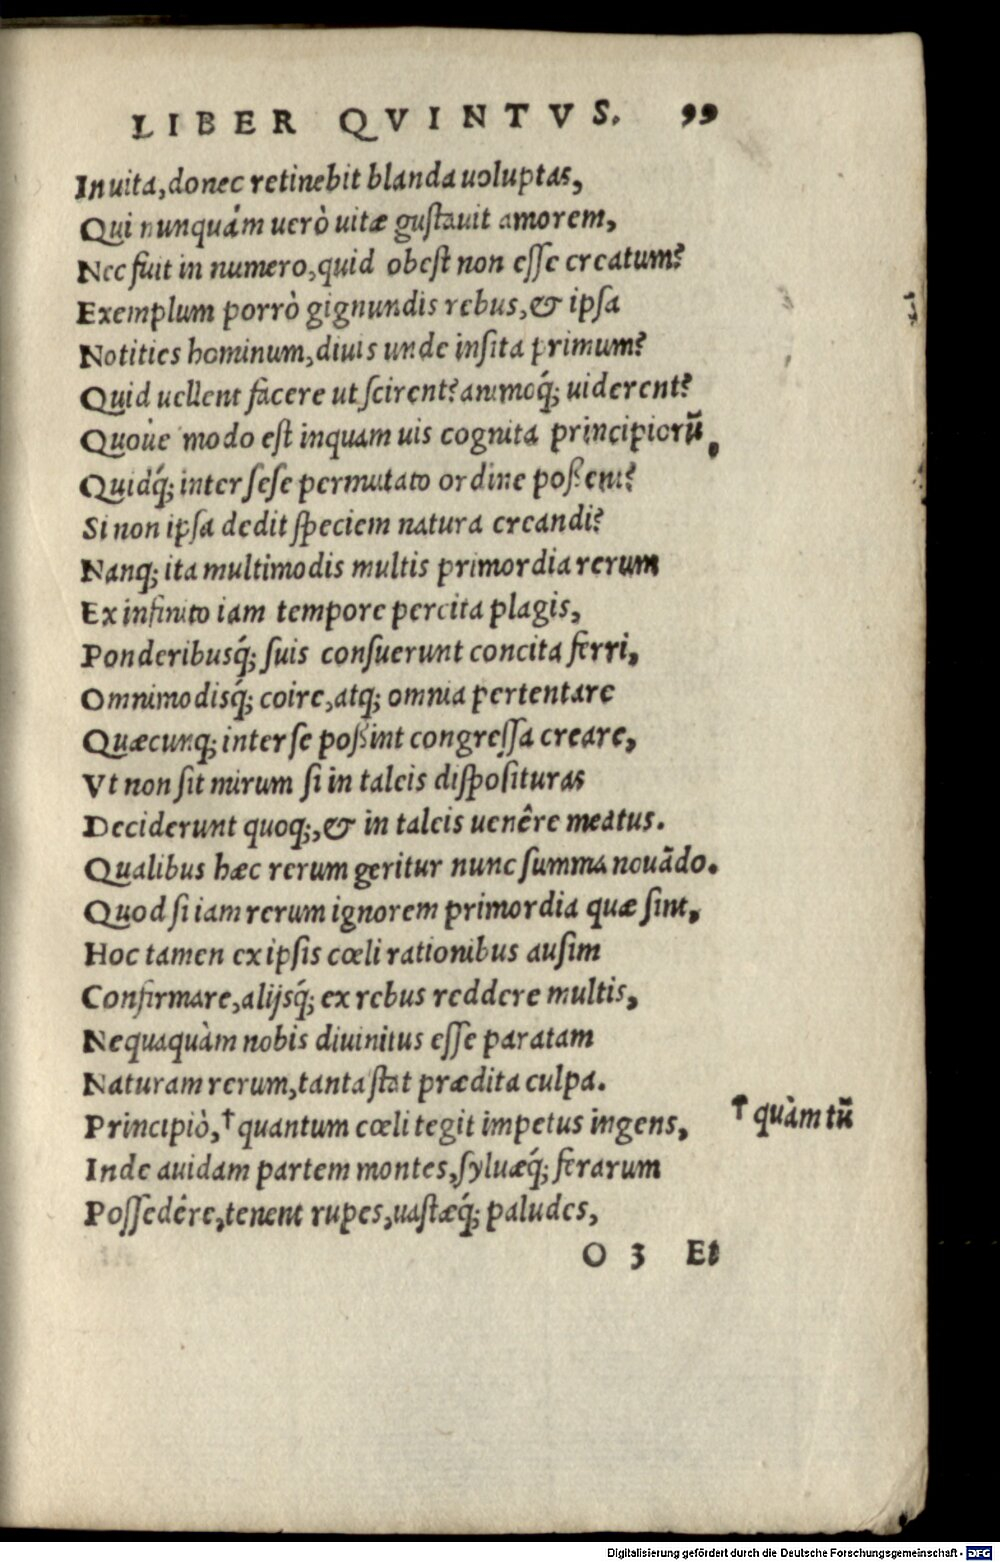 LIBER QVINTVS. 99
In uita, donec retinebit blanda uoluptas,
Qui nunquám uerò uitæ gustauit amorem,
Nec fuit in numero, quid obest non esse creatum?
Exemplum porrò gignundis rebus, & ipsa
Notities hominum, diuis unde insita primum?
Quid uellent facere ut scirent? animoq́; uiderent?
Quoúe modo est inquam uis cognita principiorũ,
Quidq́; inter sese permutato ordine possent?
Si non ipsa dedit speciem natura creandi?
Nanq; ita multimodis multis primordia rerum
Ex infinito iam tempore percita plagis,
Ponderibusq́; suis consuerunt concita ferri,
Omnimodisq́; coire, atq; omnia pertentare
Quæcunq; inter se possint congressa creare,
Vt non sit mirum si in taleis disposituras
Deciderunt quoq;, & in taleis uenêre meatus.
Qualibus hæc rerum geritur nunc summa nouãdo.
Quod si iam rerum ignorem primordia quæ sint,
Hoc tamen ex ipsis cœli rationibus ausim
Confirmare, alijsq́; ex rebus reddere multis,
Nequaquàm nobis diuinitus esse paratam
Naturam rerum, tanta stat prædita culpa.
Principiò, † quantum cœli tegit impetus ingens, † quàm tũ
Inde auidam partem montes, syluæq́; ferarum
Possedêre, tenent rupes, uastæq́; paludes,
O 3 Et
Digitalisierung gefördert durch die Deutsche Forschungsgemeinschaft - DFG